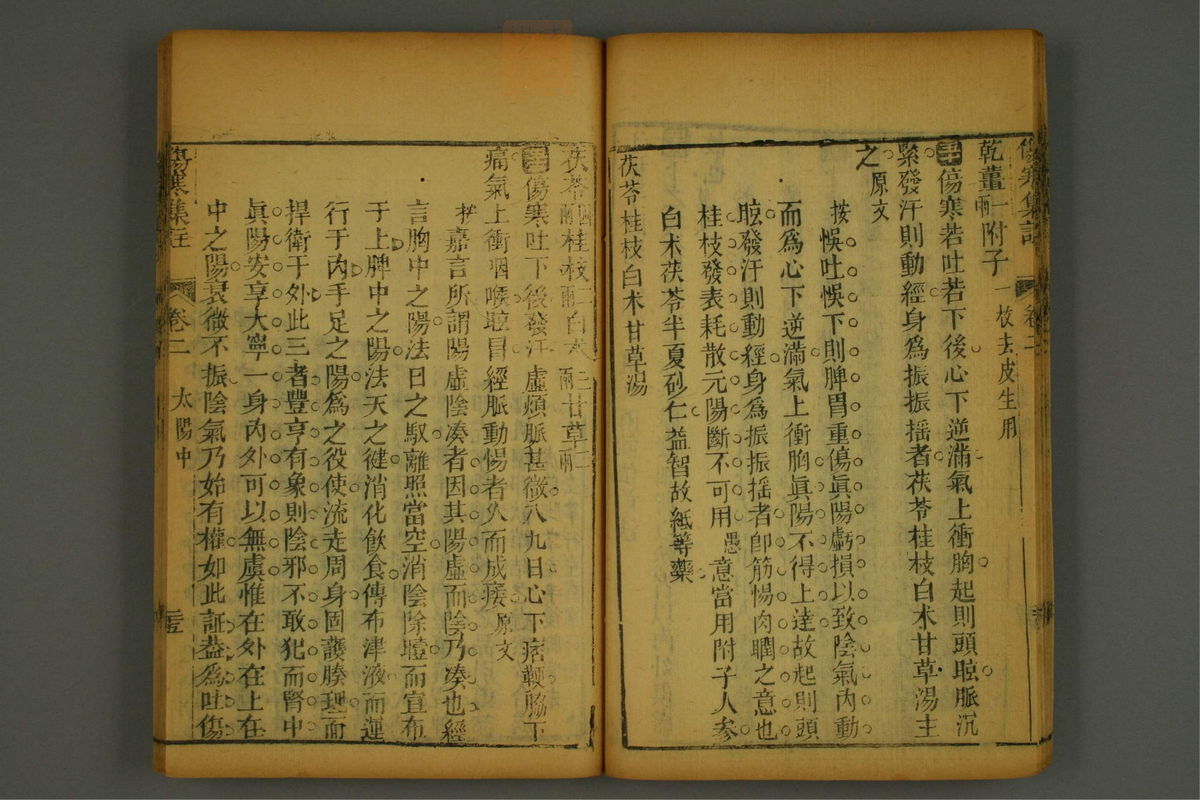 傷寒集註 卷二
乾薑一兩附子一枚去皮生用
傷寒若吐若下後心下逆滿氣上衝胸起則頭眩脈沉
緊發汗則動經身爲振振揺者茯苓桂枝白术甘草湯主
之原文
按悞吐悞下則脾胃重傷眞陽虧損以致陰氣內動
而爲心下逆滿氣上衝胸眞陽不得上達故起則頭
眩發汗則動經身爲振振揺者卽筋惕肉瞤之意也
桂枝發表耗散元陽斷不可用愚意當用附子人參
白术茯苓半夏砂仁益智故紙等藥
茯苓桂枝白术甘草湯
茯苓四兩桂枝三兩白术二兩甘草二兩
傷寒吐下後發汗虛煩脈甚微八九日心下痞鞕脇下
痛氣上衝咽喉眩冒經脈動惕者久而成痿原文
按嘉言所謂陽虛陰凑者因其陽虛而陰乃凑也經
言胸中之陽法日之馭離照當空消陰除曀而宣布
于上脾中之陽法天之健消化飲食傳布津液而運
行于內手足之陽爲之役使流走周身固護腠理而
捍衛于外此三者豐亨有象則陰邪不敢犯而腎中
眞陽安享大寧一身內外可以無虞惟在外在上在
中之陽衰微不振陰氣乃始有權如此証蓋爲吐傷
傷寒集註 卷二 太陽中